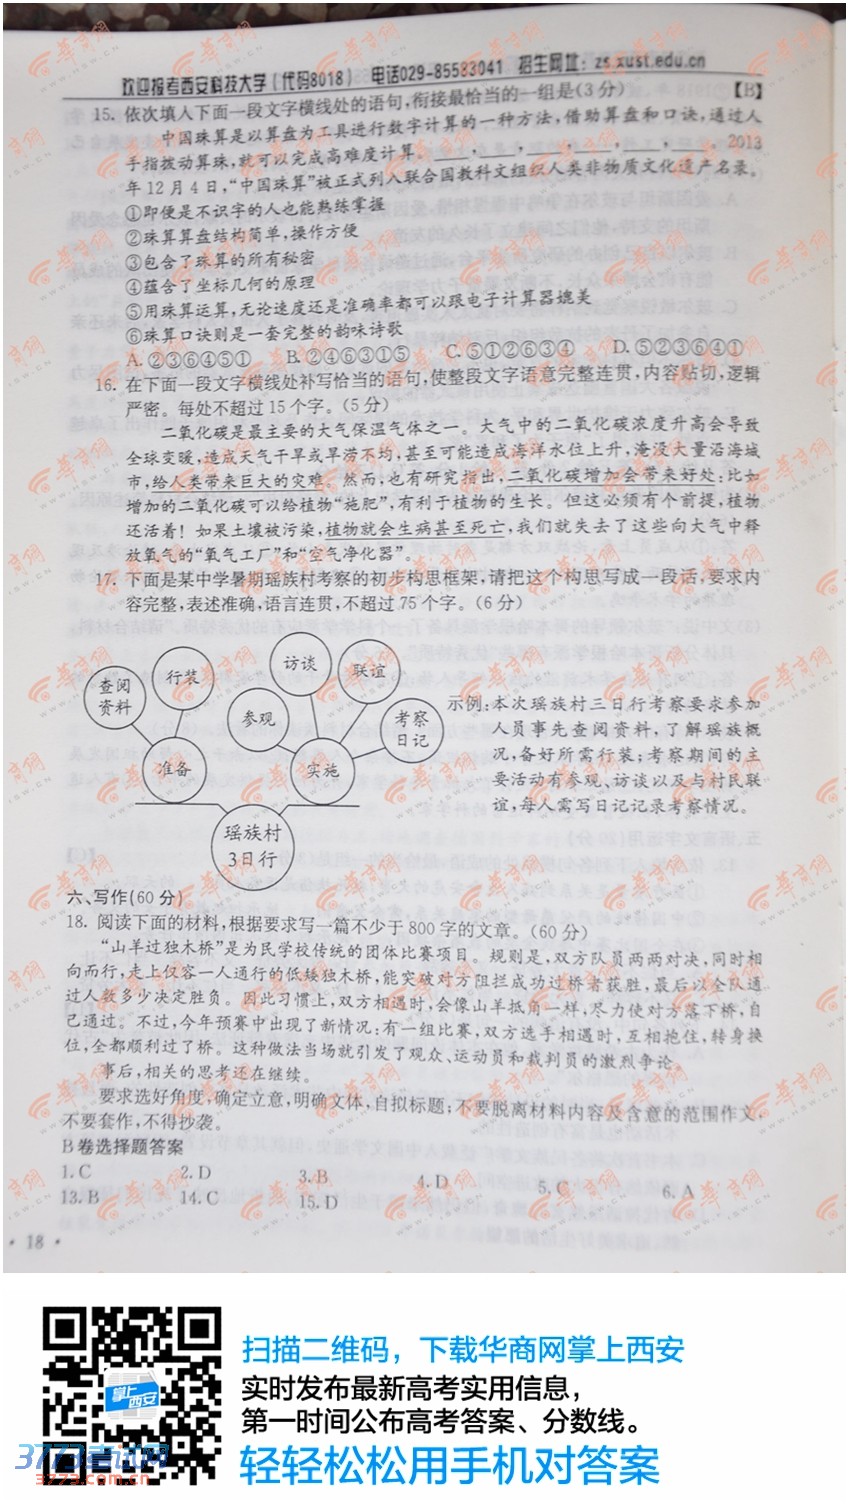 欢迎报考西安科技大学(代码8018) 电话029-85583041 招生网址: zs.xust.edu.cn
【B】
15. 依次填入下面一段文字横线处的语句,衔接最恰当的一组是(3分)
中国珠算是以算盘为工具进行数字计算的一种方法,借助算盘和口诀,通过人
手指拨动算珠,就可以完成高难度计算。____,____,____,____,____,____。2013
年12月4日,“中国珠算”被正式列入联合国教科文组织人类非物质文化遗产名录。
①即便是不识字的人也能熟练掌握
②珠算算盘结构简单,操作方便
③包含了珠算的所有秘密
④蕴含了坐标几何的原理
⑤用珠算运算,无论速度还是准确率都可以跟电子计算器媲美
⑥珠算口诀则是一套完整的韵味诗歌
A. ②③⑥④⑤① B. ②④⑥③①⑤ C. ⑤①②⑥③④ D. ⑤②③⑥④①
16. 在下面一段文字横线处补写恰当的语句,使整段文字语意完整连贯,内容贴切,逻辑
严密。每处不超过15个字。(5分)
二氧化碳是最主要的大气保温气体之一。大气中的二氧化碳浓度升高会导致
全球变暖,造成天气干旱或旱涝不均,甚至可能造成海洋水位上升,淹没大量沿海城
市,给人类带来巨大的灾难。然而,也有研究指出,二氧化碳增加会带来好处:比如
增加的二氧化碳可以给植物“施肥”,有利于植物的生长。但这必须有个前提,植物
还活着!如果土壤被污染,植物就会生病甚至死亡,我们就失去了这些向大气中释
放氧气的“氧气工厂”和“空气净化器”。
17. 下面是某中学暑期瑶族村考察的初步构思框架,请把这个构思写成一段话,要求内
容完整,表述准确,语言连贯,不超过75个字。(6分)
查阅
资料
行装
访谈
联谊
参观
考察
日记
准备
实施
瑶族村
3日行
示例:本次瑶族村三日行考察要求参加
人员事先查阅资料,了解瑶族概
况,备好所需行装;考察期间的主
要活动有参观、访谈以及与村民联
谊,每人需写日记记录考察情况。
六、写作(60分)
18. 阅读下面的材料,根据要求写一篇不少于800字的文章。(60分)
“山羊过独木桥”是为民学校传统的团体比赛项目。规则是,双方队员两两对决,同时相
向而行,走上仅容一人通行的低矮独木桥,能突破对方阻拦成功过桥者获胜,最后以全队通
过人数多少决定胜负。因此习惯上,双方相遇时,会像山羊抵角一样,尽力使对方落下桥,自
己通过。不过,今年预赛中出现了新情况:有一组比赛,双方选手相遇时,互相抱住,转身换
位,全都顺利过了桥。这种做法当场就引发了观众、运动员和裁判员的激烈争论。
事后,相关的思考还在继续。
要求选好角度,确定立意,明确文体,自拟标题;不要脱离材料内容及含意的范围作文,
不要套作,不得抄袭。
B卷选择题答案
1. C 2. D 3. B 4. D 5. C 6. A
13. B 14. C 15. D
· 18 ·
掌上
西安
3773考试网
3773.com.cn
扫描二维码,下载华商网掌上西安
实时发布最新高考实用信息,
第一时间公布高考答案、分数线。
轻轻松松用手机对答案